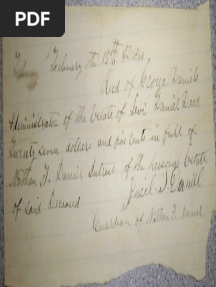 PDF
February the 15th
Recd of George Daniels
Administrator of the Estate of Levi Daniel Decd
Twenty seven dollars and five cents in full of
Nathan F. Daniels Interest of the
of Said Deceased
Daniel
Guardian of Nathan F. Daniel